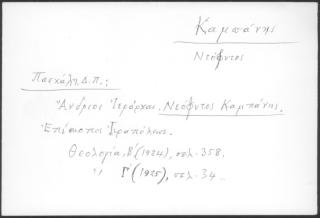 Καμπάνης
Νεόφυτος
Πασχάλη, Δ. Π.:
Ἄνδριοι Ἱεράρχαι. Νεόφυτος Καμπάνης.
Ἐπίσκοπος Ἱεραπόλεως.
Θεολογία, Β΄(1924), σελ. 358.
〃 Γ΄(1925), σελ. 34..